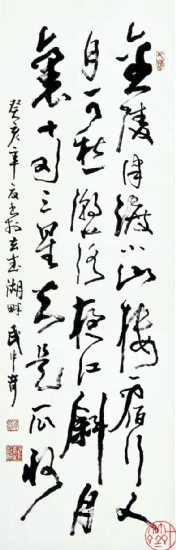 金陵津渡小山樓一宿行人
自可愁潮落夜江斜月
裏兩三星火是瓜洲
癸亥年夏書於玄武湖畔武中奇